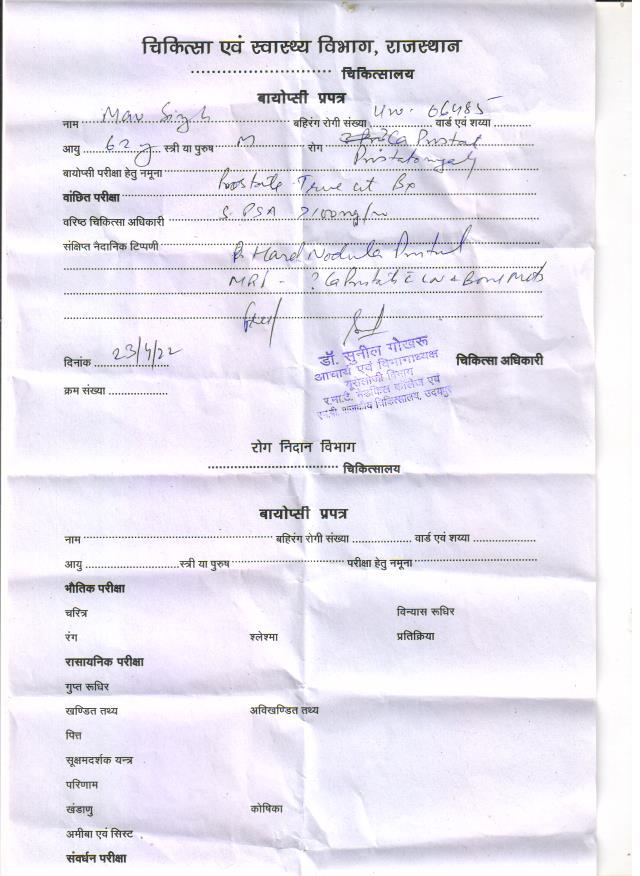 चिकित्सा एवं स्वास्थ्य विभाग, राजस्थान
चिकित्सालय
बायोप्सी प्रपत्र
नाम Man Singh बहिरंग रोगी संख्या 06485 वार्ड एवं शय्या
आयु 62 y स्त्री या पुरुष M रोग Ca Prostate
बायोप्सी परीक्षा हेतु नमूना
वांछित परीक्षा Prostate True cut Bx
वरिष्ठ चिकित्सा अधिकारी S. PSA >100 ng/
संक्षिप्त नैदानिक टिप्पणी Hard Nodular Prostate
MRI - ? Ca Prostate c LN + Bone Mets
दिनांक 23/4/22 डॉ. सुनील गोखरू चिकित्सा अधिकारी
आचार्य एवं विभागाध्यक्ष
यूरोलोजी विभाग
क्रम संख्या र.ना.टै. मेडिकल कॉलेज एवं
राजकीय चिकित्सालय, उदयपुर
रोग निदान विभाग
चिकित्सालय
बायोप्सी प्रपत्र
नाम बहिरंग रोगी संख्या वार्ड एवं शय्या
आयु स्त्री या पुरुष परीक्षा हेतु नमूना
भौतिक परीक्षा
चरित्र विन्यास रूधिर
रंग श्लेश्मा प्रतिक्रिया
रासायनिक परीक्षा
गुप्त रूधिर
खण्डित तथ्य अविखण्डित तथ्य
पित्त
सूक्षमदर्शक यन्त्र
परिणाम
खंडाणु कोषिका
अमीबा एवं सिस्ट
संवर्धन परीक्षा